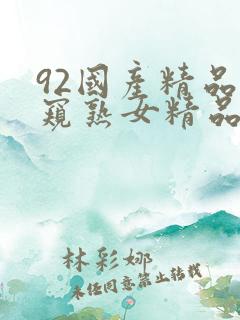 92國產精品
窺熟女精品
林彩娜
未经同意禁止转载